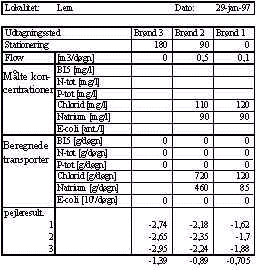 Lokalitet: Lem Dato: 29-jan-97
Udtagningssted Brønd 3 Brønd 2 Brønd 1
Stationering 180 90 0
Flow [m3/døgn] 0 0,5 0,1
Målte kon-
centrationer
BI5 [mg/l]
N-tot [mg/l]
P-tot [mg/l]
Chlorid [mg/l] 110 120
Natrium [mg/l] 90 90
E-coli [ant./l]
Beregnede
transporter
BI5 [g/døgn] 0 0 0
N-tot [g/døgn] 0 0 0
P-tot [g/døgn] 0 0 0
Chlorid [g/døgn] 720 120
Natrium [g/døgn] 460 85
E-coli /døgn] 0 0 0
pejleresult.
1 -2,74 -2,18 -1,62
2 -2,65 -2,35 -1,7
3 -2,95 -2,24 -1,88
-1,39 -0,89 -0,705